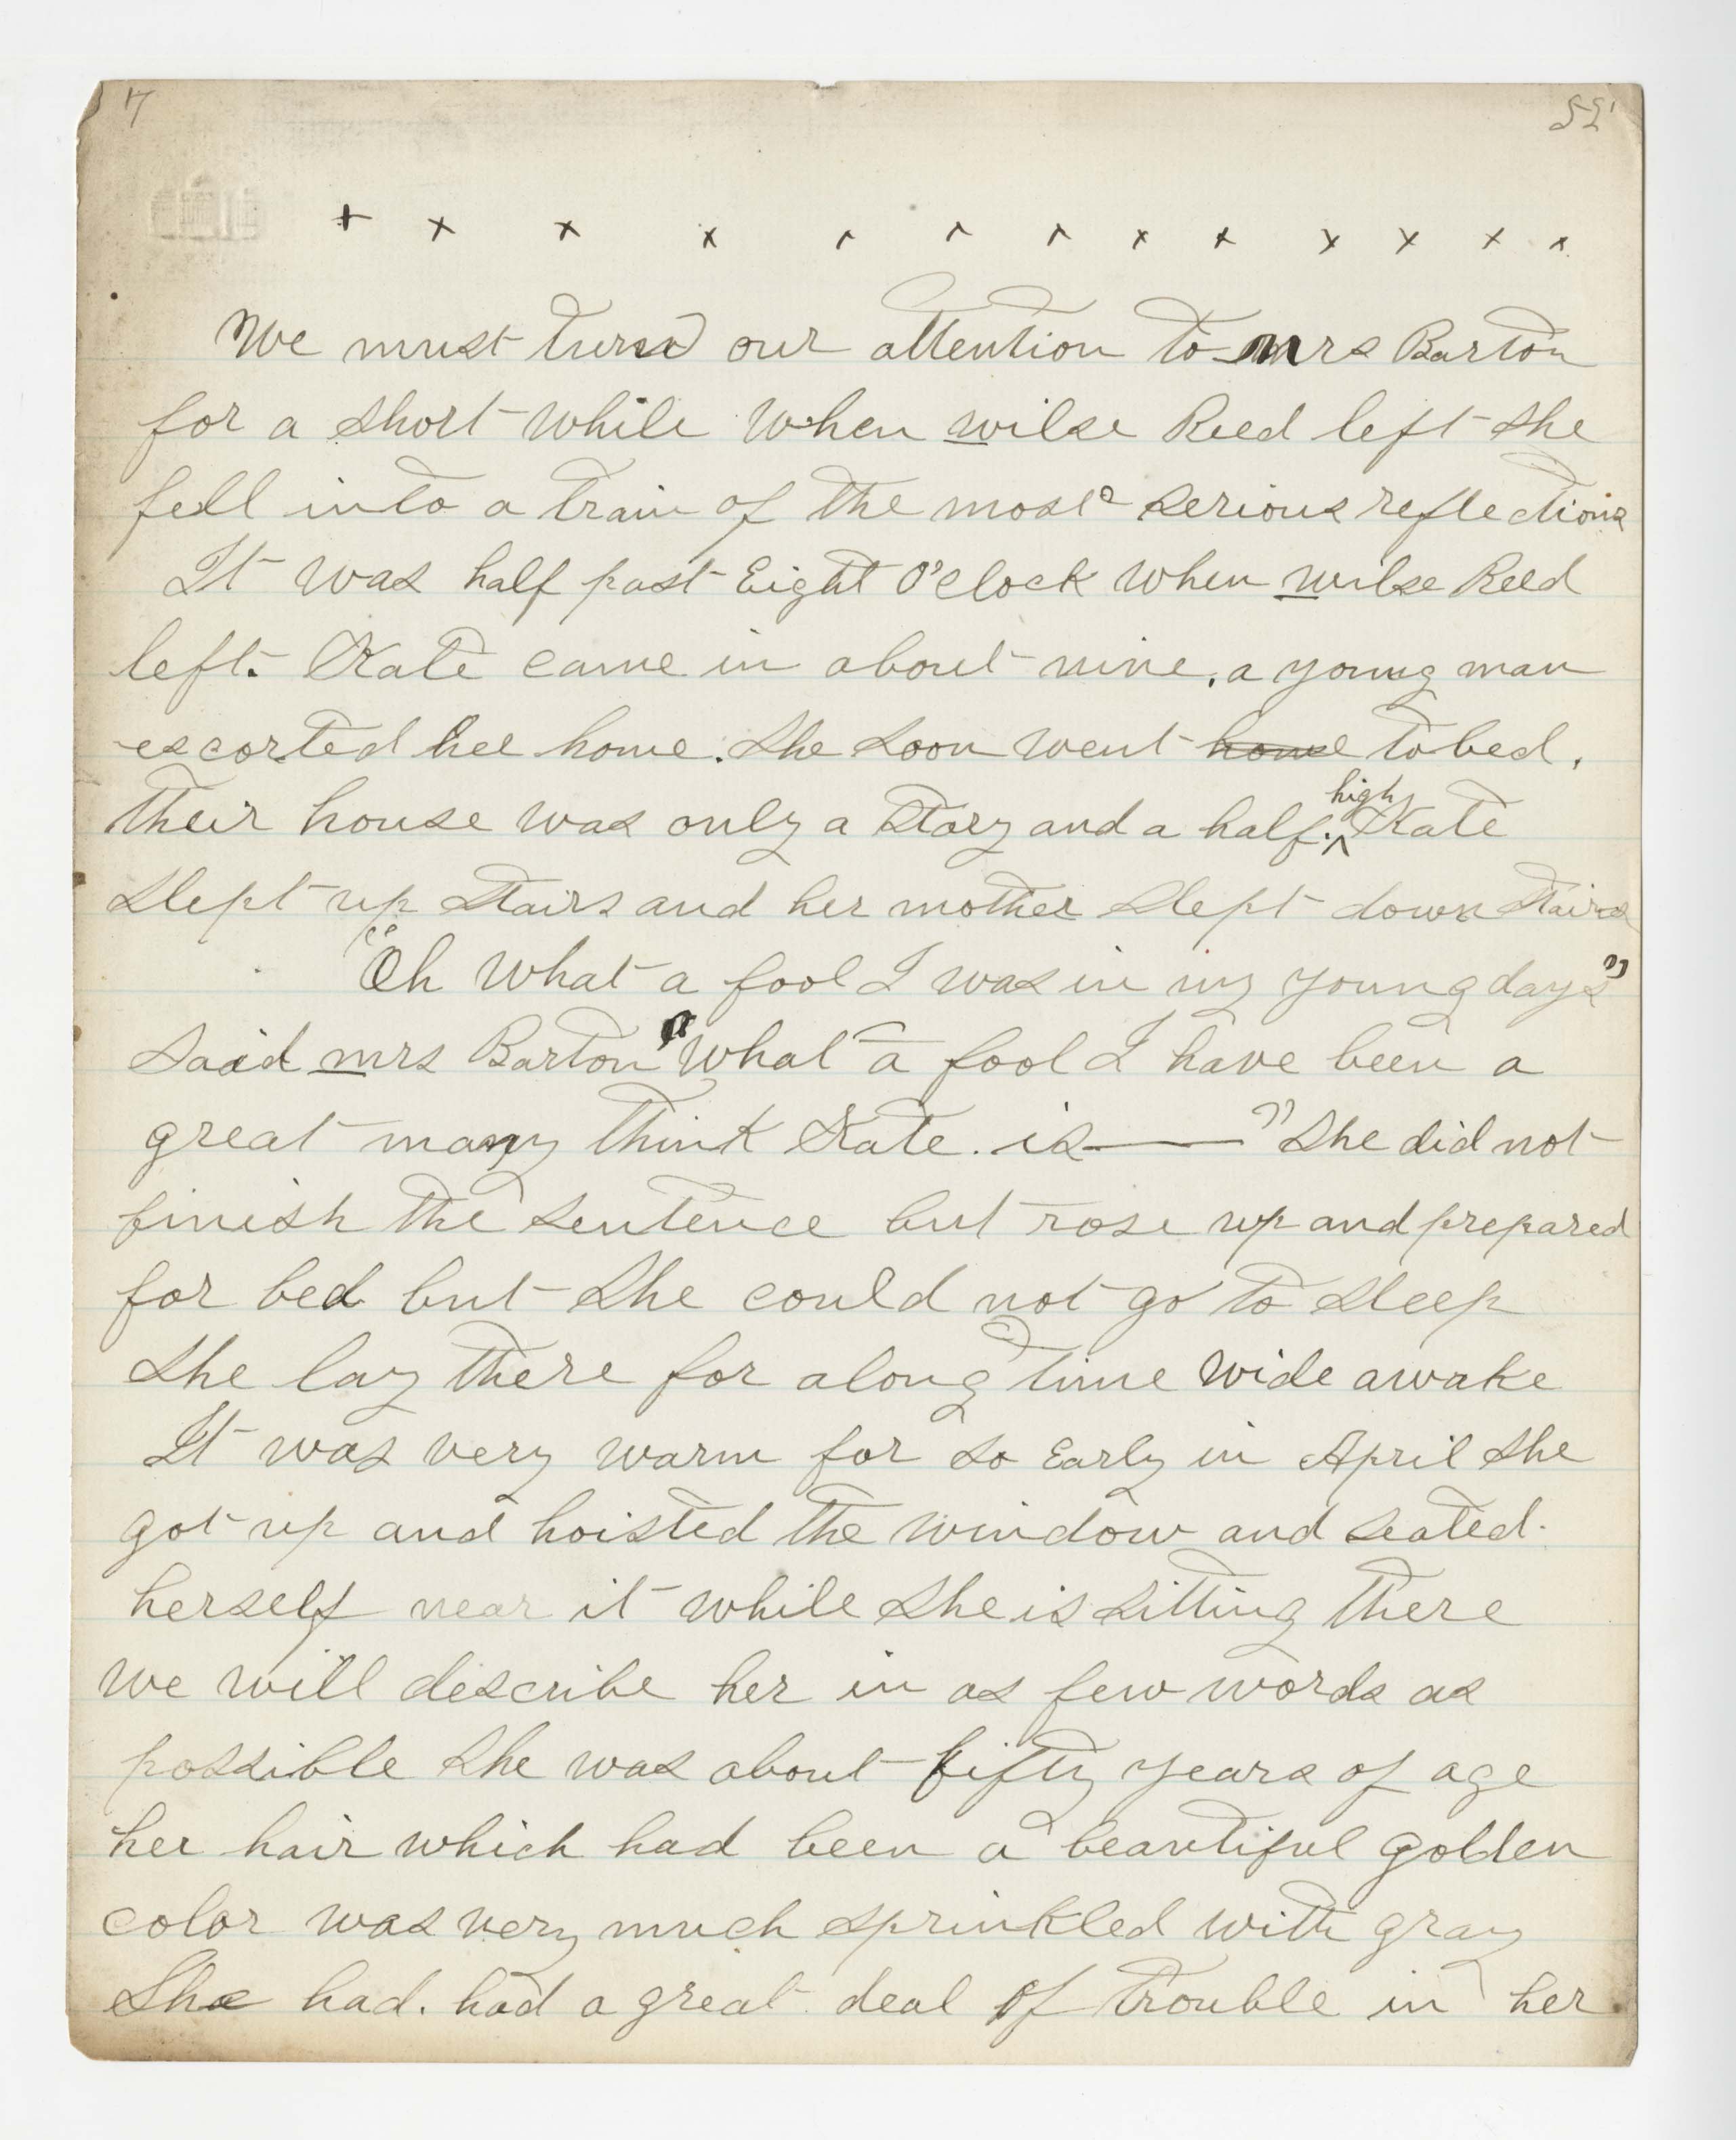 17 55
+ x x x x x x x x x x x x
We must turn our attention to mrs Barton
for a short while When wilse Reed left she
fell into a train of the most serious reflections
It was half past Eight O'clock when wilse Reed
left. Kate came in about nine, a young man
escorted her home. She soon went home to bed.
Their house was only a story and a half. high Kate
slept up stairs and her mother slept down stairs
"Oh what a fool I was in my young days"
said mrs Barton "What a fool I have been a
great many think Kate. is——" She did not
finish the sentence but rose up and prepared
for bed but she could not go to sleep
she lay there for along time wide awake
It was very warm for so Early in April she
got up and hoisted the window and seated
herself near it while she is sitting there
we will describe her in as few words as
possible she was about fifty years of age
her hair which had been a beautiful golden
color was very much sprinkled with gray
She had. had a great deal of trouble in her